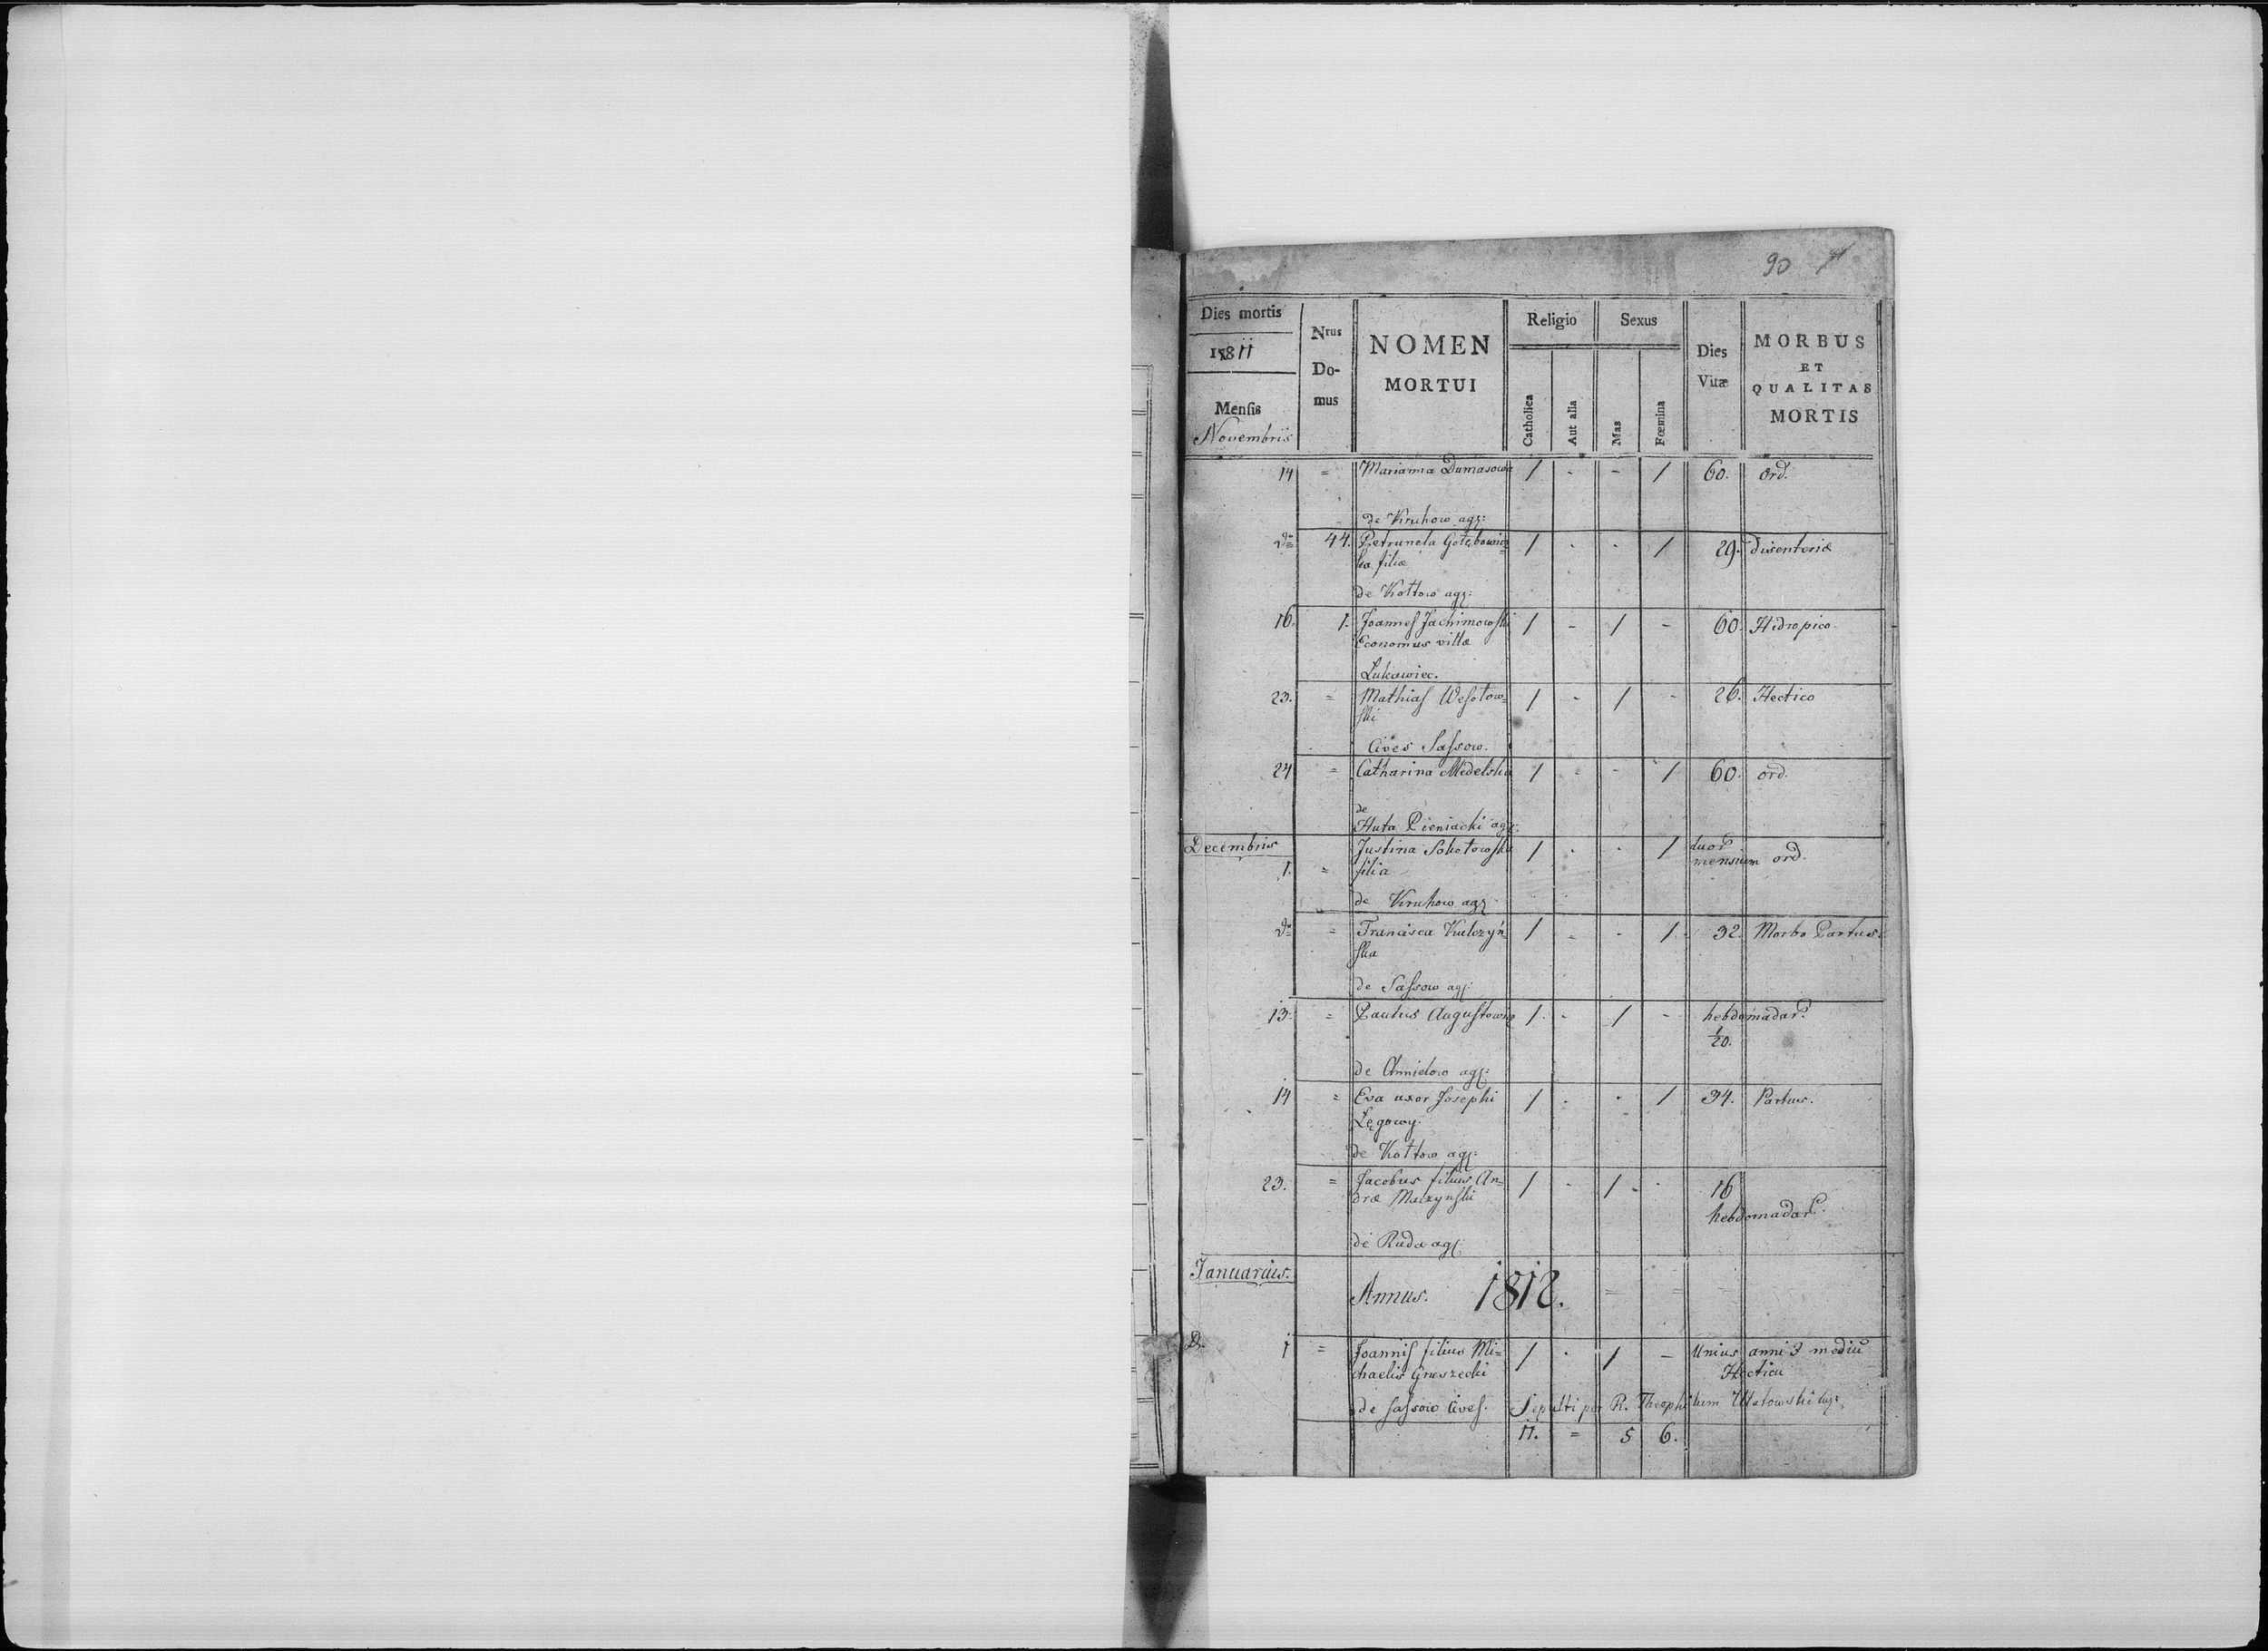 90
Dies mortis
1811
Mensis
Novembris
Nrus
Do-
mus
NOMEN
MORTUI
Religio
Catholica
Aut alia
Sexus
Mas
Fœmina
Dies
Vitæ
MORBUS
ET
QUALITAS
MORTIS
14 = Marianna Dumasowa 1 - - 1 60. Ord.
de Kruhow agr:
do 44. Petrunela Gołębowicz= 1 - - 1 29. disenteria
ka filia
de Kołtow agr:
16. 1. Joannes Jachimowski 1 - 1 - 60. Hidropico
Economus villa
Lukawiec.
23. = Mathias Wesołow= 1 - 1 - 26. Hectico
ski
Cives Sassow.
24 = Catharina Midelska 1 - - 1 60. ord.
de
Huta Pieniacki agr:
Decembris
1. = Justina Sokołowska 1 - - 1 duor mensium ord.
filia
de Kruhow agr
do = Francisca Kulczyń= 1 - - 1 32. Morbo Partus.
ska
de Sassow agr:
13. = Paulus Augustowicz 1 - 1 - hebdomadar.
1/20.
de Chmielow agr:
14 = Eva uxor Josephi 1 - - 1 34. Partus.
Łęgowy
de Kołtow agr:
23. = Jacobus filius An= 1 - 1 - 16
dræ Maczynski
hebdomadar.
de Ruda agr:
Januarius.
Annus. 1812.
D. 1 = Joannis filius Mi= 1 - 1 - Unius anni
chaelis Gruszecki Hectica
de Sassow Cives. Sepulti per R. Theophilum
11. = 5 6.